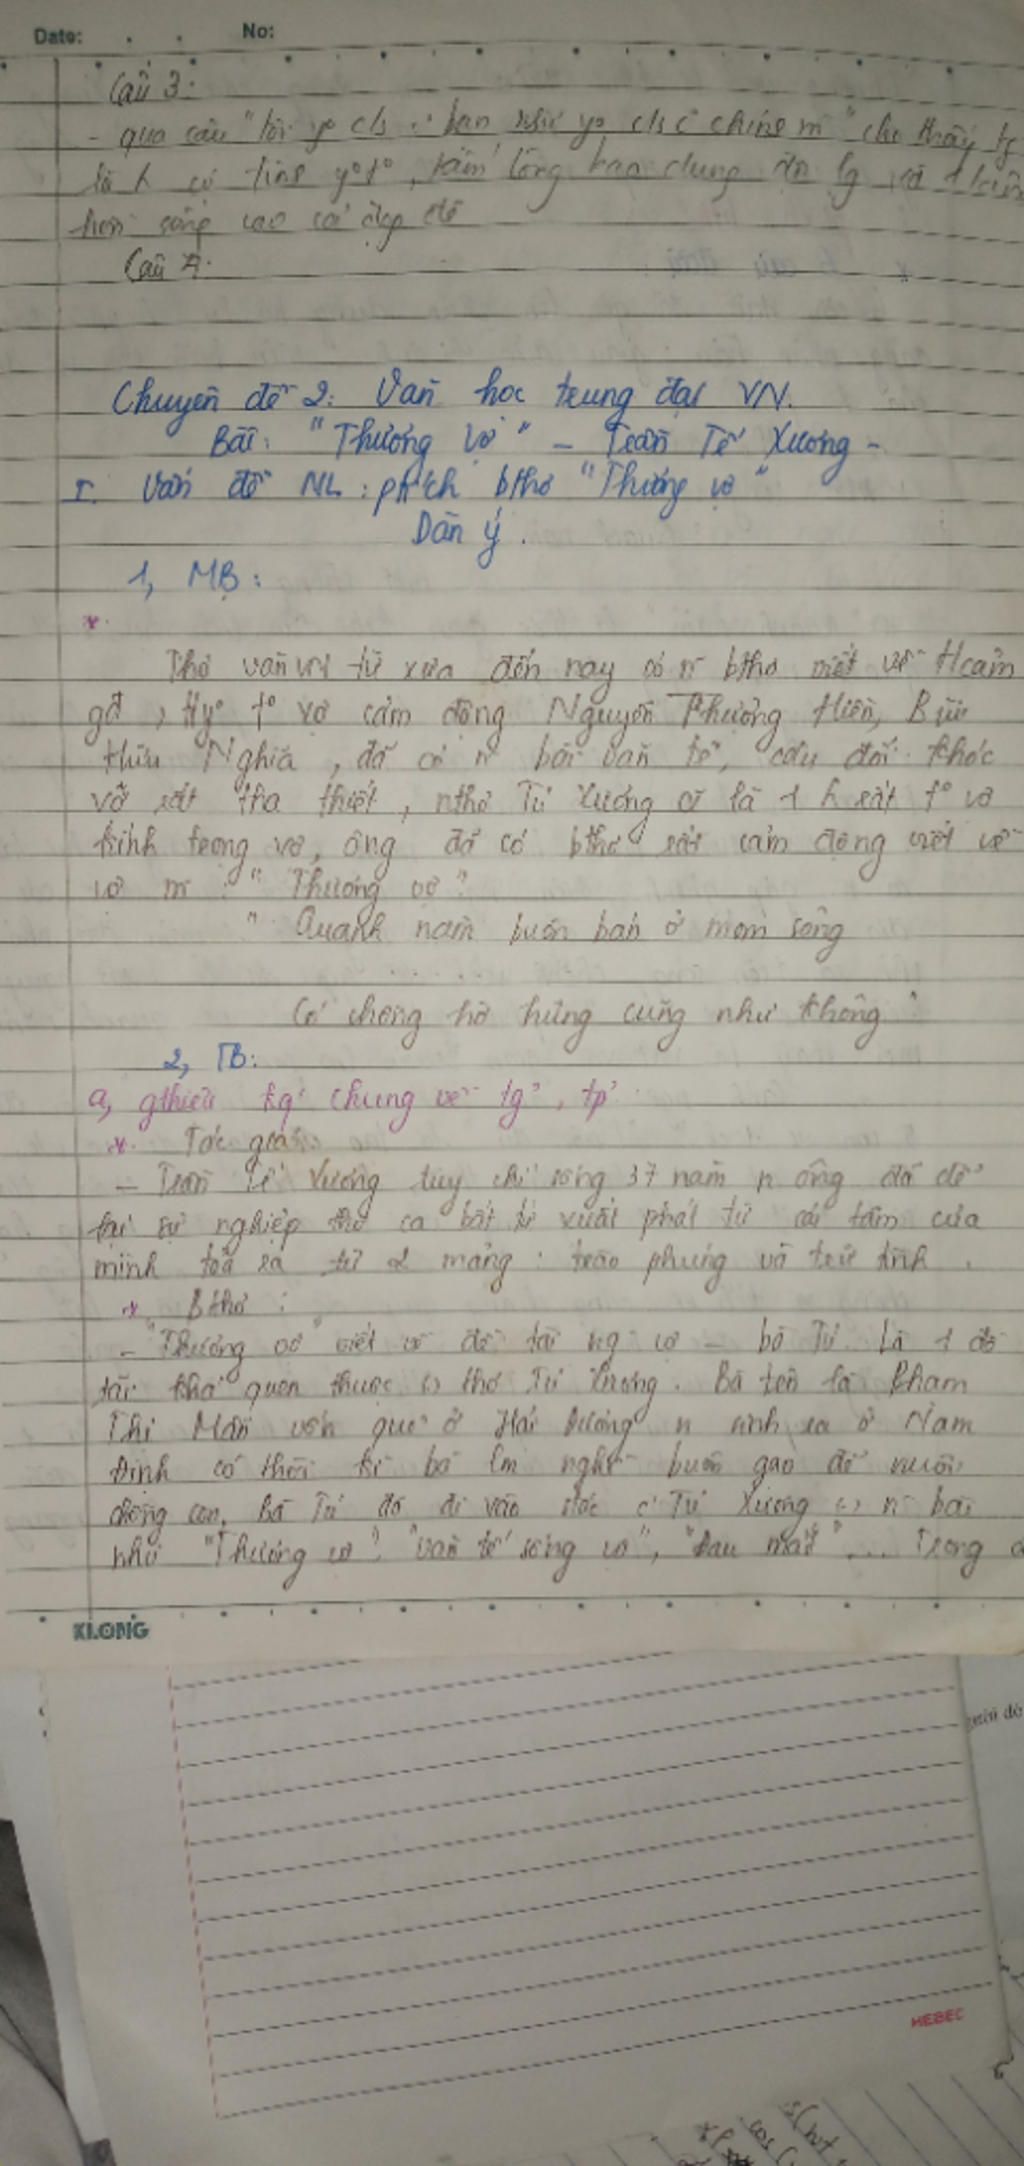 Date: No:
Câu 3:
- qua câu "tôi yo c/s bạn như yo c/s chính m" cho thấy tg
là 1 có tình yo to, tấm lòng bao dung
sống cao cả đẹp đẽ
Câu 4:
Chuyên đề 2: Văn học trung đại VN.
Bài: "Thương vợ" - Trần Tế Xương -
I. Vấn đề NL: ptích bthơ "Thương vợ"
Dàn ý.
1, MB:
*
Thơ văn VN từ xưa đến nay có n~ bthơ viết về tcảm
gđ, ty to vợ cảm động Nguyễn Thượng Hiền, Bùi
Hữu Nghĩa, đã có n~ bài văn tế, câu đối khóc
vợ rất tha thiết, nthơ Tú Xương cx là 1 rất to vợ
kính trọng vợ, ông đã có bthơ rất cảm động viết về
vợ m: "Thương vợ"
"Quanh năm buôn bán ở mom sông
Có chồng hờ hững cũng như không"
2, TB:
a, gthiệu kq chung về tg, tp
* Tác giả:
- Trần Tế Xương tuy chỉ sống 37 năm n ông đã để
lại sự nghiệp thơ ca bất tử xuất phát từ cái tâm của
mình toả ra từ 2 mảng: trào phúng và trữ tình.
* Bthơ:
- "Thương vợ" viết về đề tài ng vợ - bà Tú. Là 1 đề
tài khá quen thuộc thơ Tú Xương. Bà tên là Phạm
Thị Mẫn vốn quê ở Hải Dương n sinh ra ở Nam
Định có thời kì bà lm nghề buôn gạo để nuôi
chồng con. Bà Tú đã đi vào Tú Xương n~ bài
như "Thương vợ", "văn tế sống vợ", "đau mắt"... Trong
KLONG
HEBEC